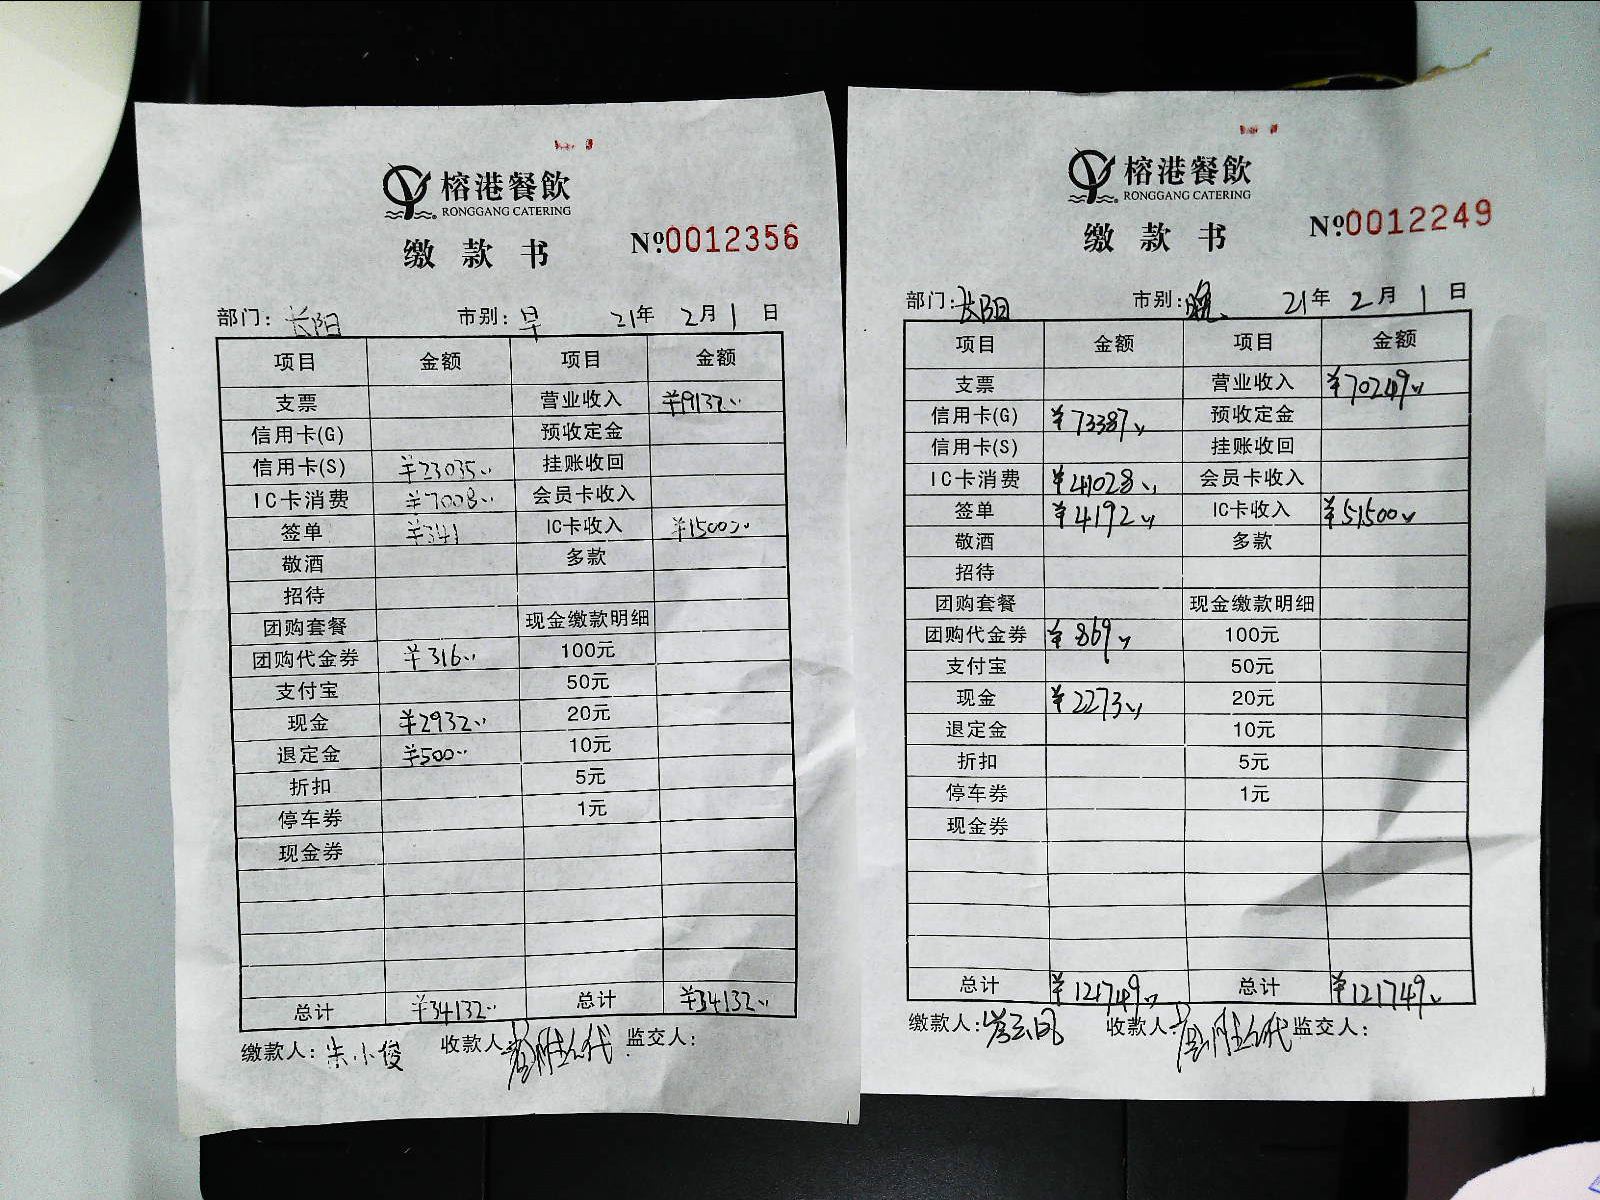 榕港餐飲
RONGGANG CATERING
缴款书
№0012356
部门: 长阳 市别: 早 21年 2月 1 日
项目 金额 项目 金额
支票 营业收入 ¥19132
信用卡(G) 预收定金
信用卡(S) ¥23035 挂账收回
IC卡消费 ¥7008 会员卡收入
签单 ¥341 IC卡收入 ¥15000
敬酒 多款
招待
团购套餐 现金缴款明细
团购代金券 ¥316 100元
支付宝 50元
现金 ¥2932 20元
退定金 ¥500 10元
折扣 5元
停车券 1元
现金券
总计 ¥34132 总计 ¥34132
缴款人: 朱小俊 收款人 监交人:
榕港餐飲
RONGGANG CATERING
缴款书
№0012249
部门: 长阳 市别: 晚 21年 2月 1 日
项目 金额 项目 金额
支票 营业收入 ¥70249
信用卡(G) ¥73387 预收定金
信用卡(S) 挂账收回
IC卡消费 ¥41028 会员卡收入
签单 ¥4192 IC卡收入 ¥51500
敬酒 多款
招待
团购套餐 现金缴款明细
团购代金券 ¥869 100元
支付宝 50元
现金 ¥2273 20元
退定金 10元
折扣 5元
停车券 1元
现金券
总计 ¥121749 总计 ¥121749
缴款人: 收款人: 监交人: